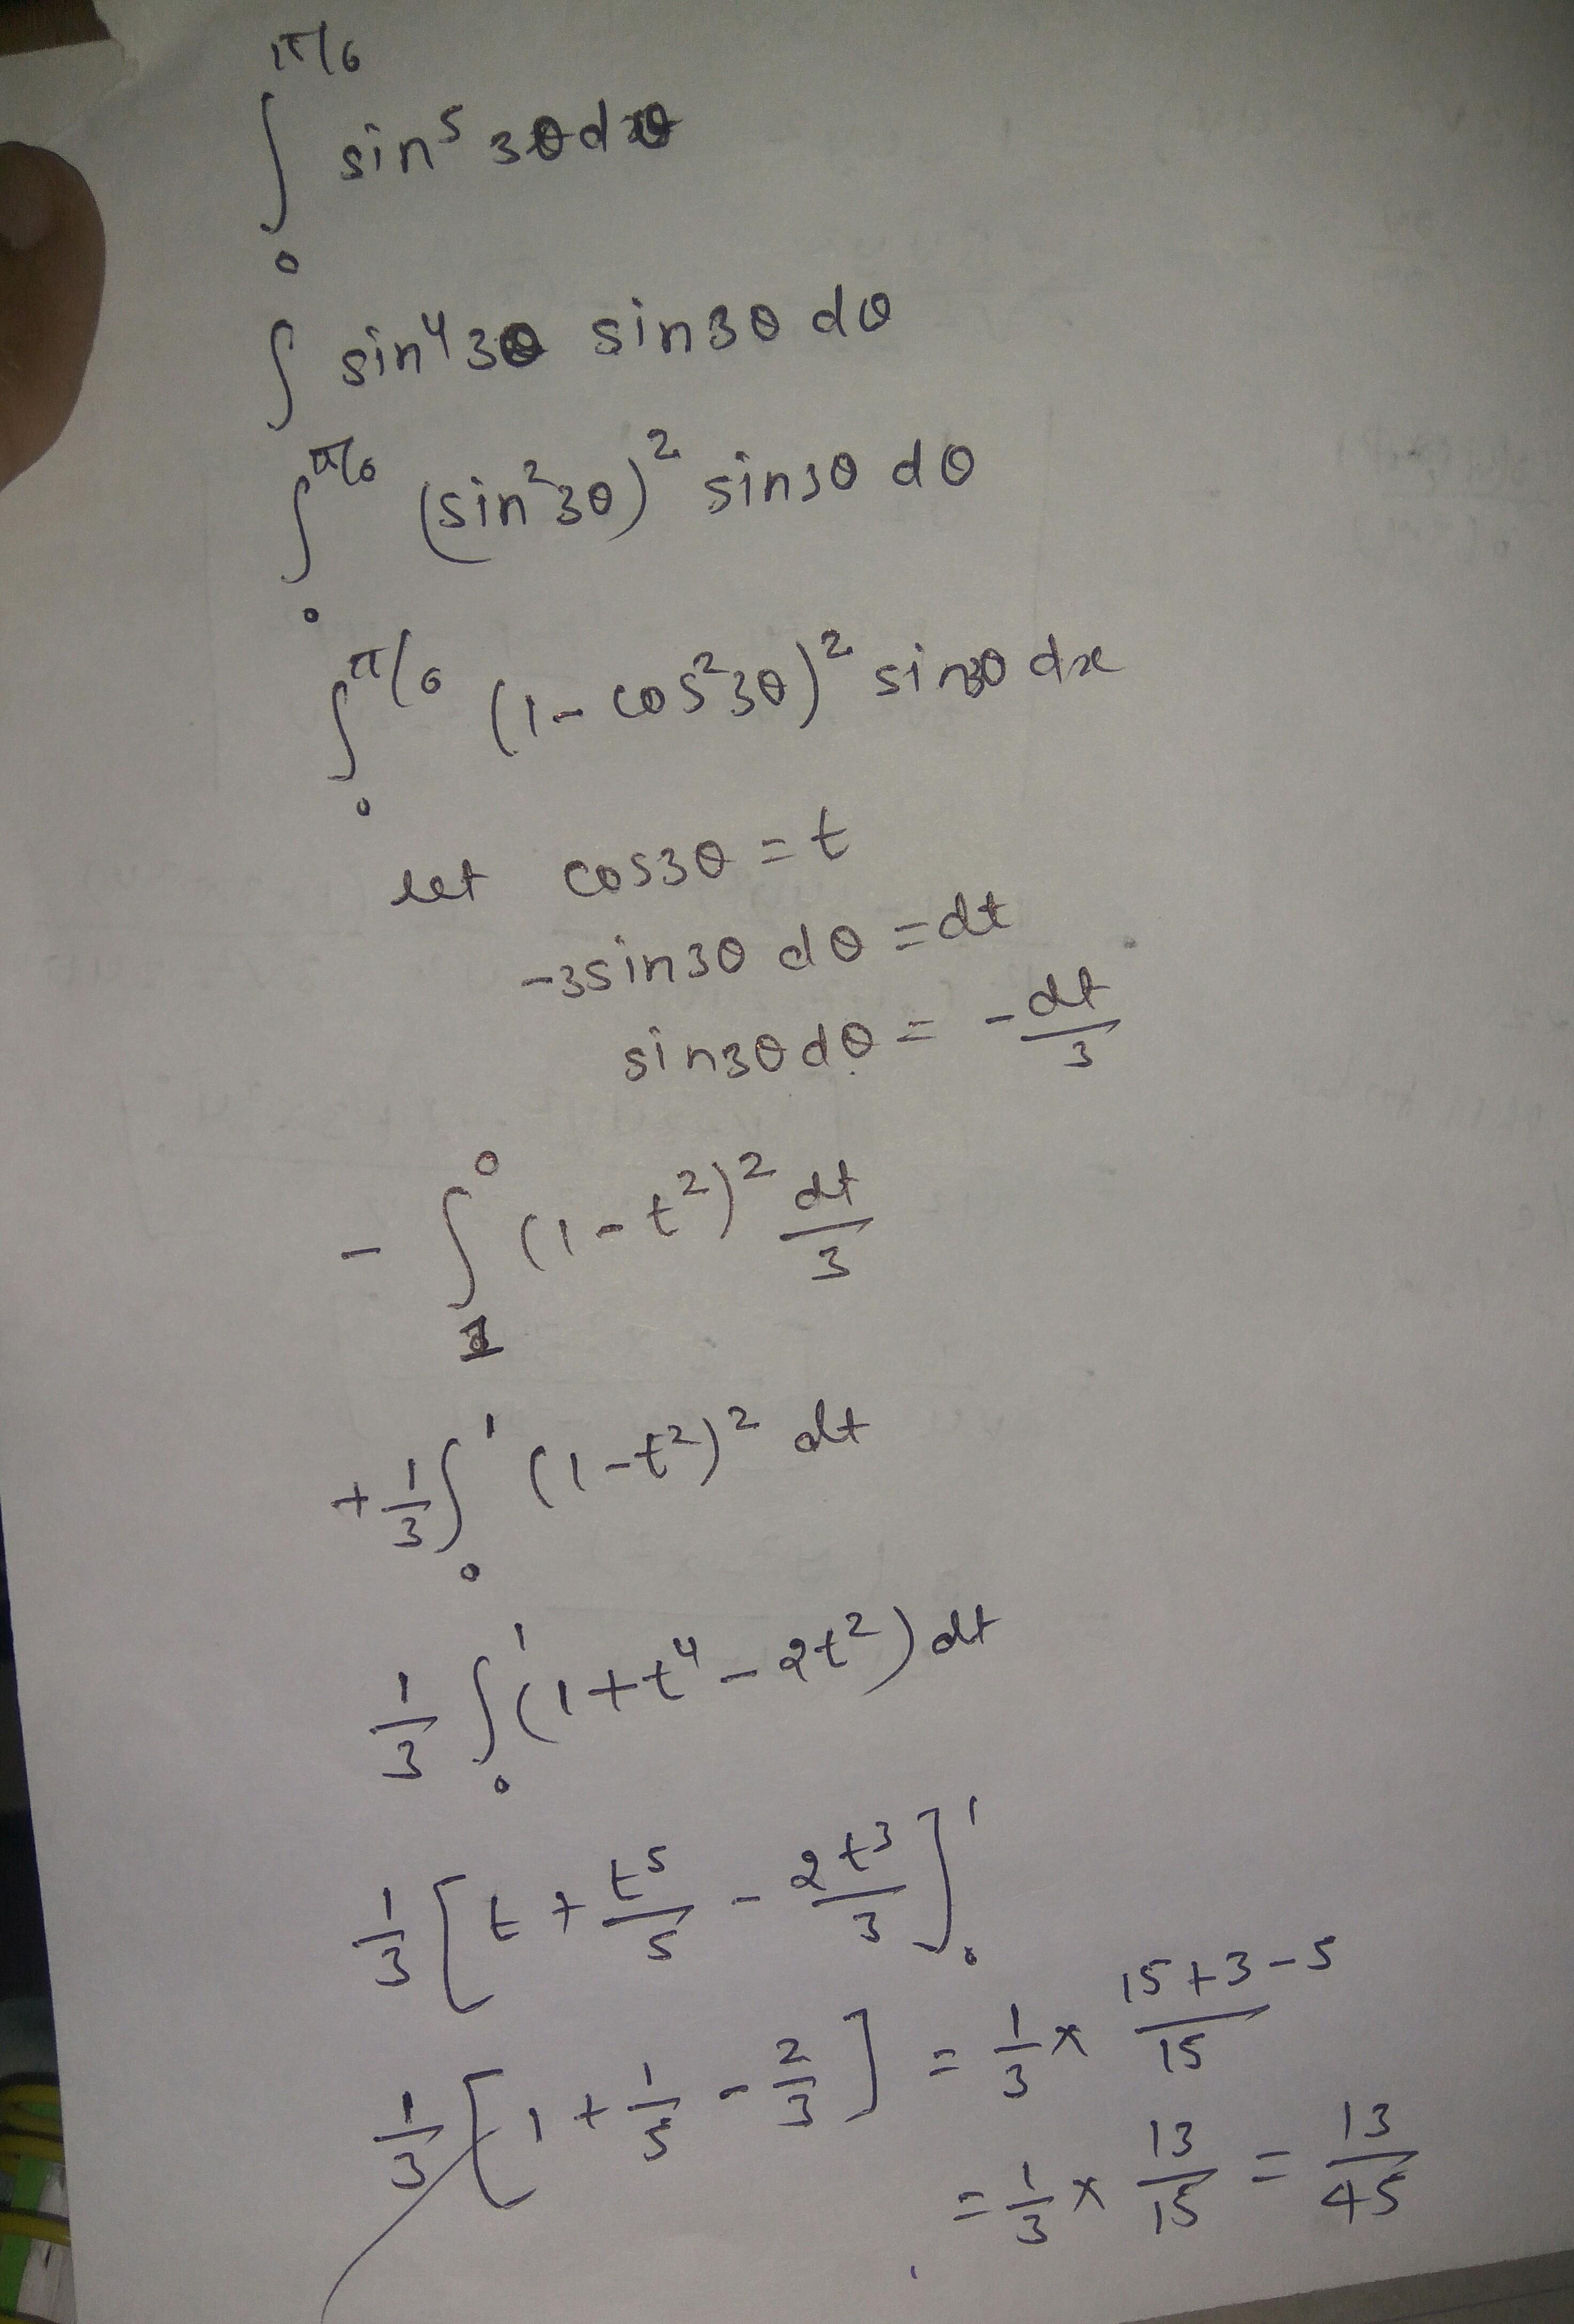 ∫₀^π/6 sin⁵ 3θ dθ
∫ sin⁴ 3θ sin3θ dθ
∫₀^π/6 (sin²3θ)² sin3θ dθ
∫₀^π/6 (1 - cos²3θ)² sin3θ dx
let cos3θ = t
-3sin3θ dθ = dt
sin3θ dθ = - dt/3
- ∫₁^0 (1 - t²)² dt/3
+ 1/3 ∫₀^1 (1 - t²)² dt
1/3 ∫₀^1 (1 + t⁴ - 2t²) dt
1/3 [t + t⁵/5 - 2t³/3]₀^1
1/3 [1 + 1/5 - 2/3] = 1/3 × (15+3-5)/15
= 1/3 × 13/15 = 13/45